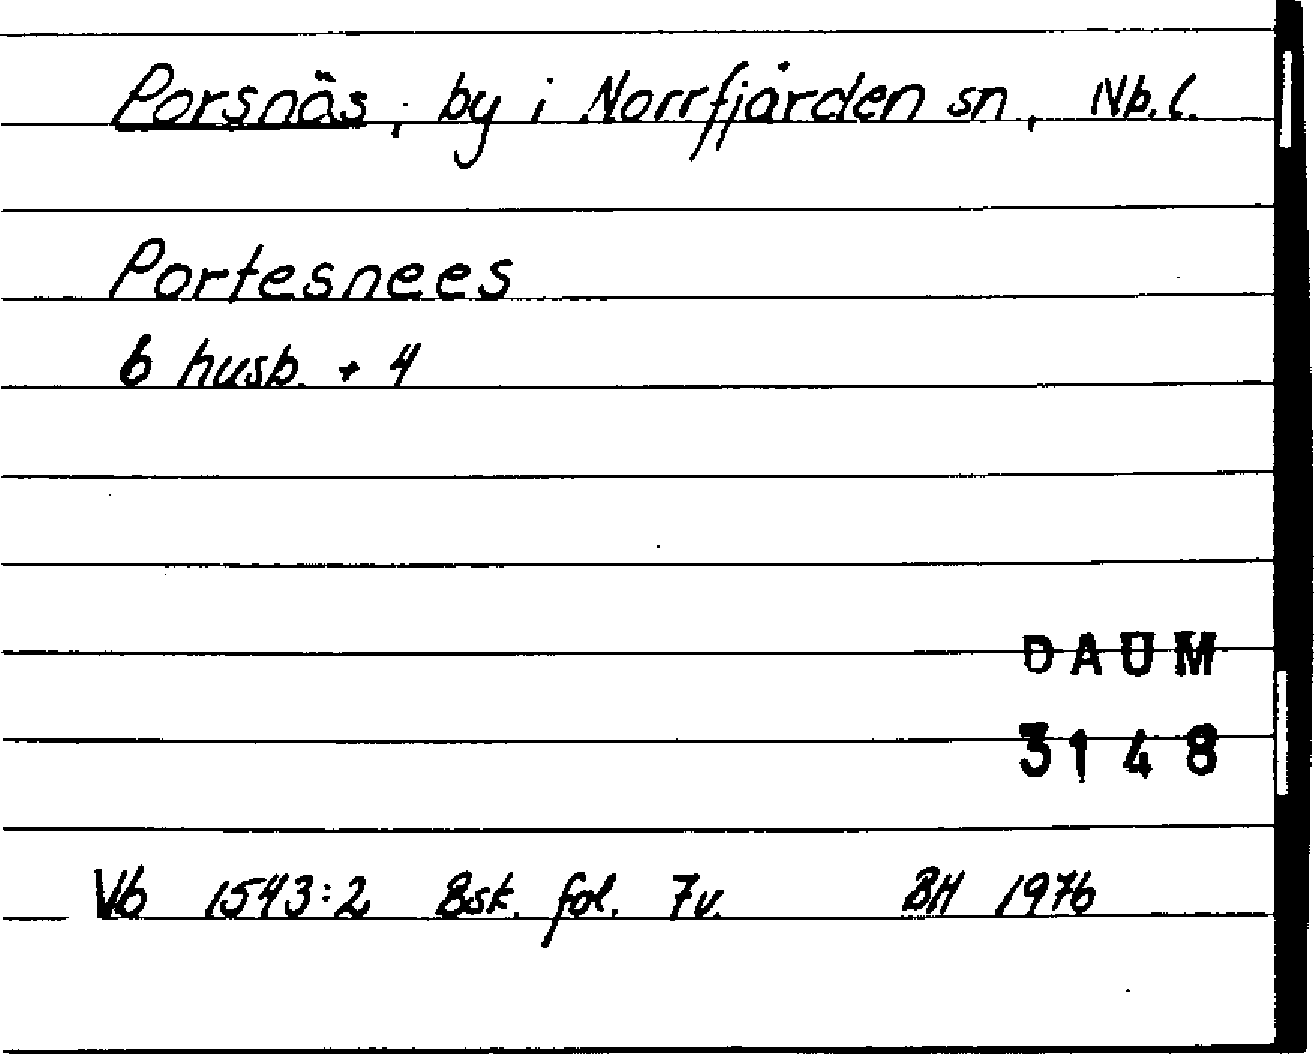 Porsnäs, by i Norrfjärden sn, Nb.l.
Portesnees
6 husb. + 4
DAUM
3148
Vb 1543:2 Bsk. fol. 7v. BH 1976